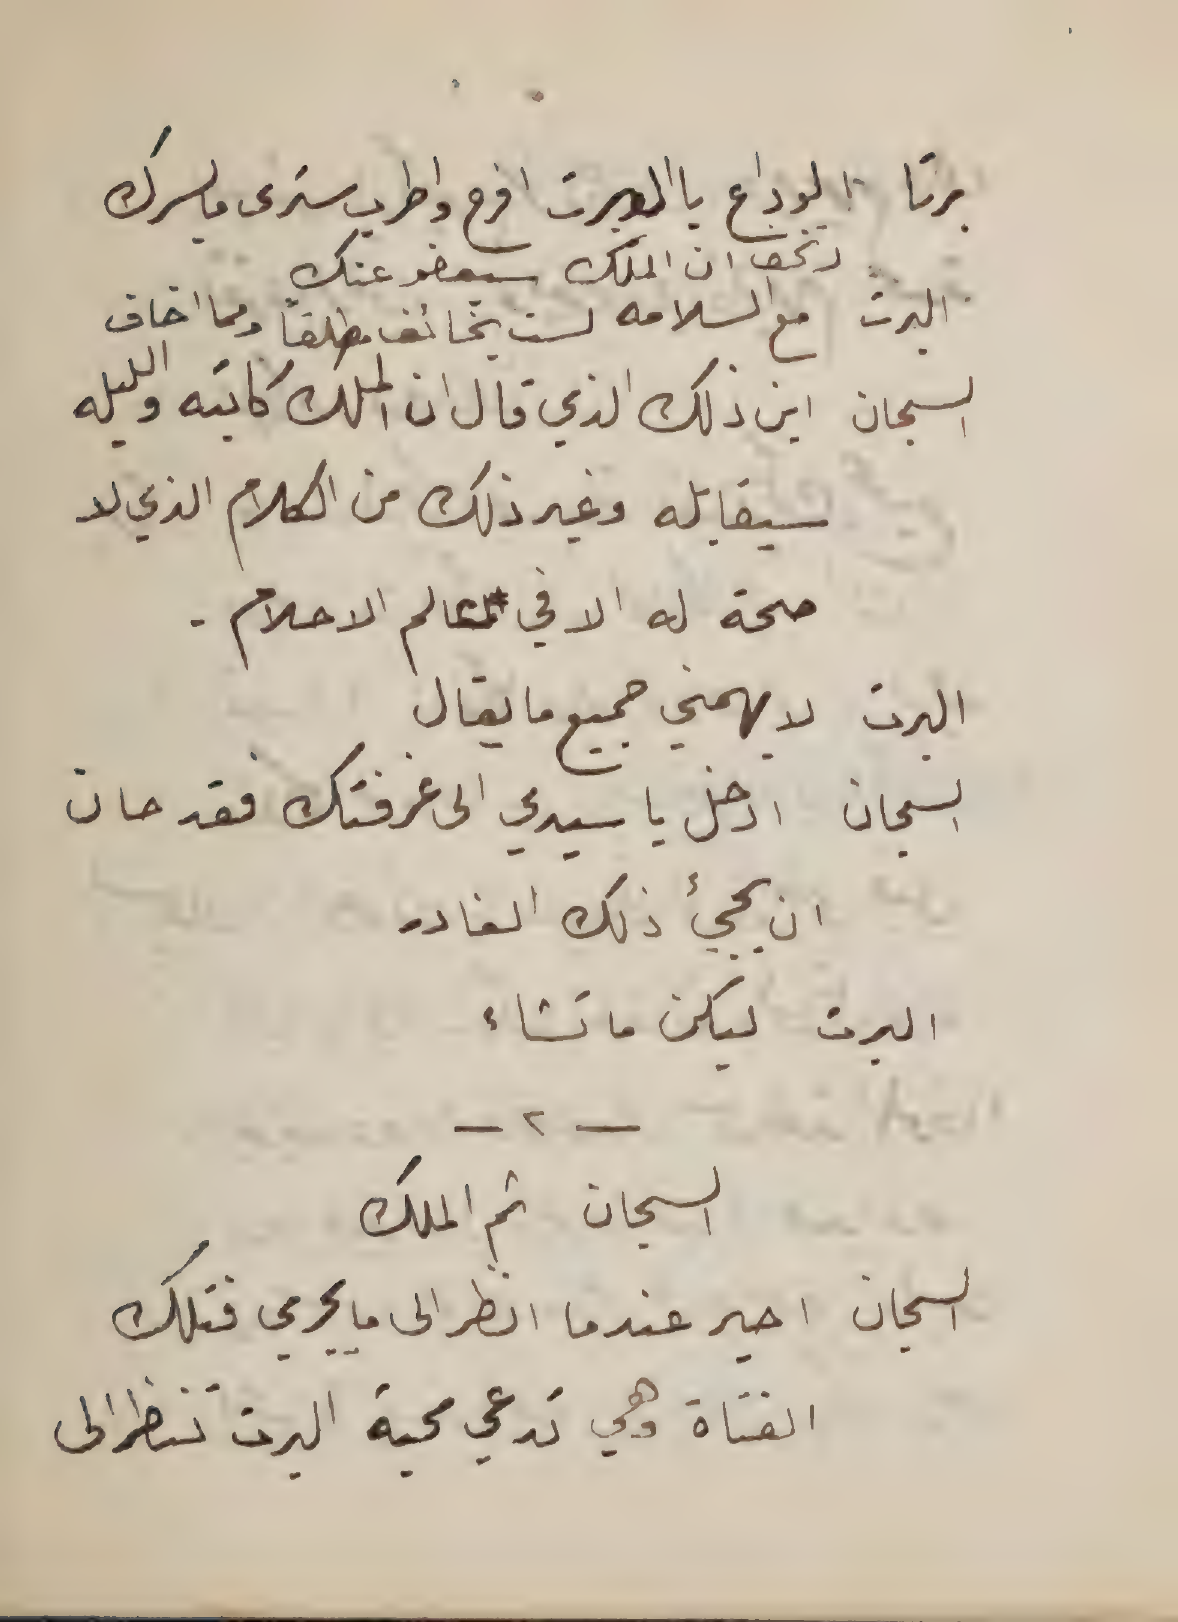 برتا الوداع يا البرت افرح واطرب سترى ما يسرك
ان الملك سيعفو عنك
البرت مع السلامه لست بخائف مطلقاً ومما اخاف
السجان اين ذلك الذي قال ان الملك كاتبه والليله
سيقابله وغير ذلك من الكلام الذي لا
صحة له الا في عالم الاحلام .
البرت لا يهمني جميع ما يقال
السجان ادخل يا سيدي الى غرفتك فقد حان
ان يجيئ ذلك الغادر
البرت ليكن ما تشاء
— ٢ —
السجان ثم الملك
السجان احير عندما انظر الى ما يجري فتلك
الفتاة وهي تدعي محبة البرت تنظر الى